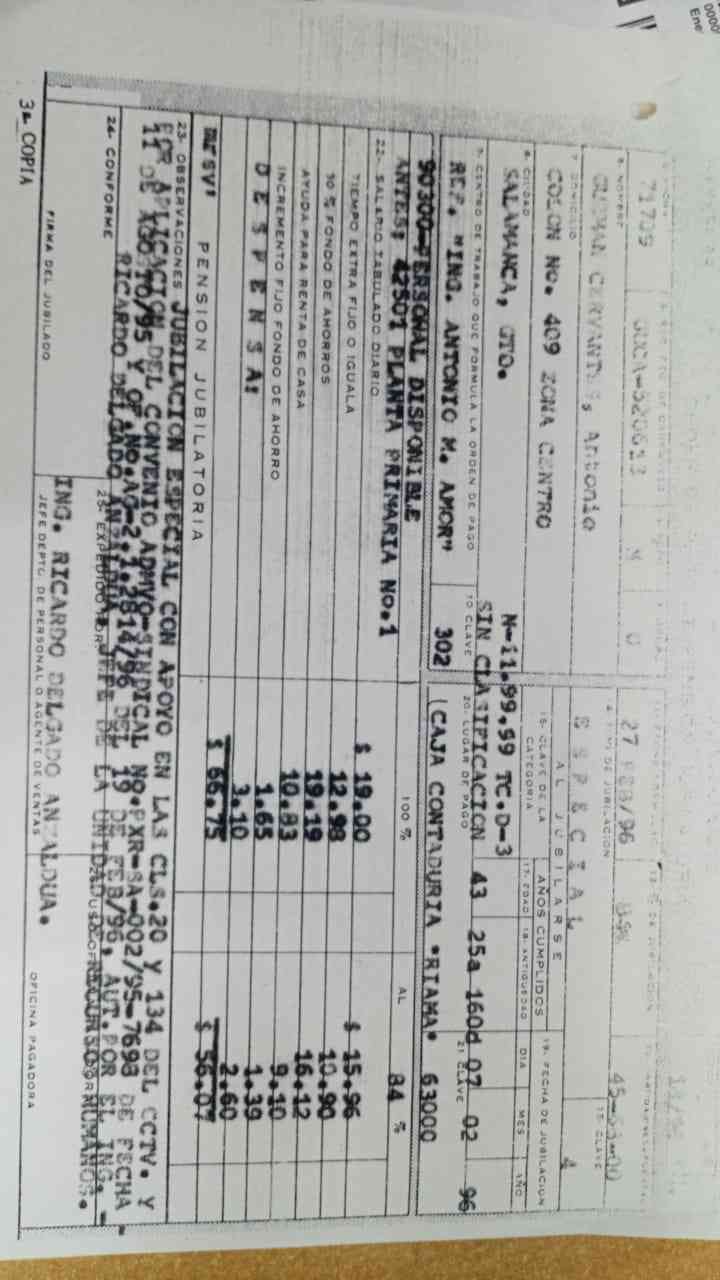 0000
Ene
71705
8- NOMBRE
GUZMAN CERVANTES, Antonio
7 DOMICILIO
COLON No. 409 ZONA CENTRO
8- CIUDAD
SALAMANCA, GTO.
9- CENTRO DE TRABAJO QUE FORMULA LA ORDEN DE PAGO
10 CLAVE
REF. "ING. ANTONIO M. AMOR" 302
90300-PERSONAL DISPONIBLE
ANTES: 42501 PLANTA PRIMARIA No.1
27 FEB/96
45-63-00
JUBILACION
15- CLAVE
ESPECIAL 4
AL JUBILARSE
15- CLAVE DE LA CATEGORIA
AÑOS CUMPLIDOS
19- FECHA DE JUBILACION
17- EDAD 18- ANTIGUEDAD DIA MES AÑO
N-11.99.59 TC.D-3
SIN CLASIFICACION 43 25a 160d 07 02 96
20- LUGAR DE PAGO 21 CLAVE
(CAJA CONTADURIA "RIAMA" 63000
100 % AL 84 %
22- SALARIO TABULADO DIARIO $ 19.00 $ 15.96
TIEMPO EXTRA FIJO O IGUALA 12.98 10.90
90 % FONDO DE AHORROS 19.19 16.12
AYUDA PARA RENTA DE CASA 10.83 9.10
INCREMENTO FIJO FONDO DE AHORRO 1.65 1.39
D E S P E N S A: 3.10 2.60
PENSION JUBILATORIA $ 66.75 $ 56.07
23- OBSERVACIONES JUBILACION ESPECIAL CON APOYO EN LAS CLS.20 Y 134 DEL CCTV. Y
POR APLICACION DEL CONVENIO ADMVO-SINDICAL No.PXR-SA-002/95-7698 DE FECHA
11 DE AGOSTO/95 Y OF.No.AG-2.1.2814/96 DEL 19 DE FEB/96, AUT.POR EL ING.
RICARDO DELGADO ANZALDUA, JEFE DE LA UNIDAD DE RECURSOS HUMANOS.
24- CONFORME
25- EXPEDIDO POR
ING. RICARDO DELGADO ANZALDUA.
FIRMA DEL JUBILADO
JEFE DEPTO. DE PERSONAL O AGENTE DE VENTAS
OFICINA PAGADORA
3a COPIA